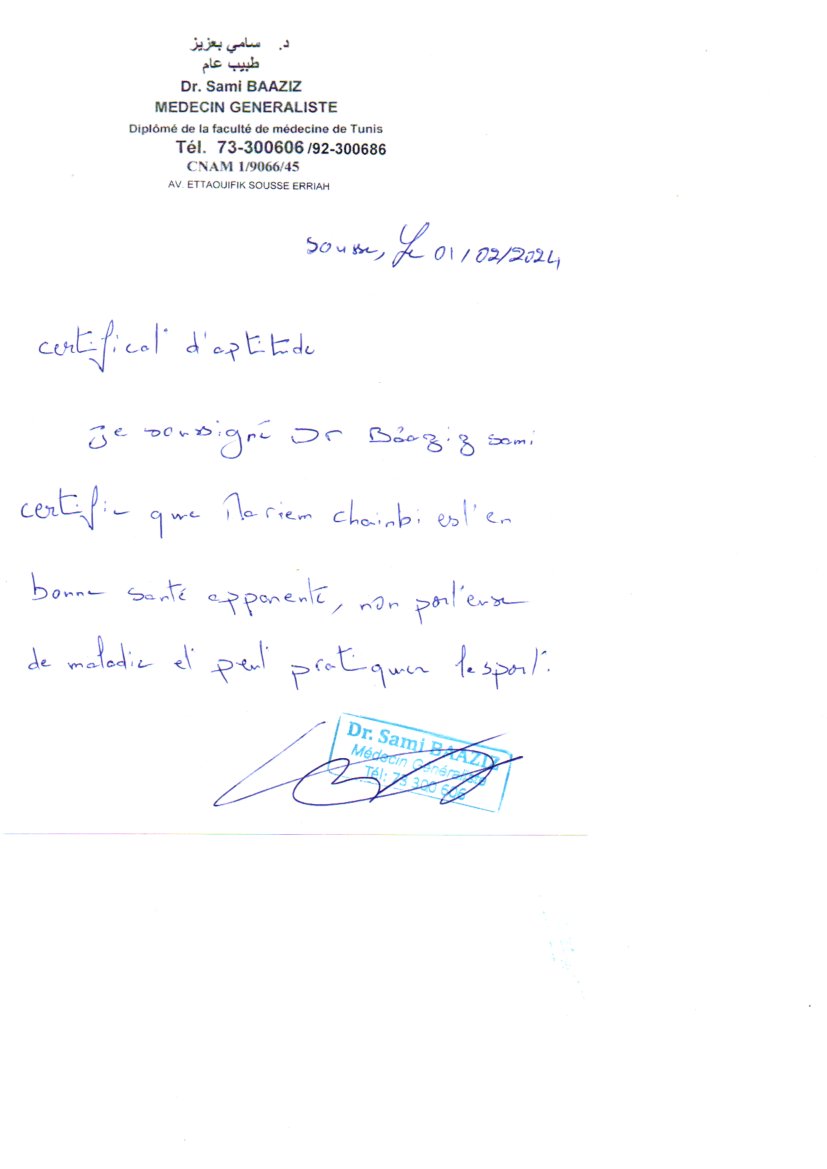 د. سامي بعزيز
طبيب عام
Dr. Sami BAAZIZ
MEDECIN GENERALISTE
Diplômé de la faculté de médecine de Tunis
Tél. 73-300606 /92-300686
CNAM 1/9066/45
AV. ETTAOUIFIK SOUSSE ERRIAH
Sousse, le 01/02/2024
certificat d'aptitude
Je soussigné Dr Bâaziz Sami
certifie que Mariem chainbi est en
bonne santé apparente, non porteuse
de maladie et peut pratiquer le sport.
Dr. Sami BAAZIZ
Médecin Généraliste
Tél: 73 300 606